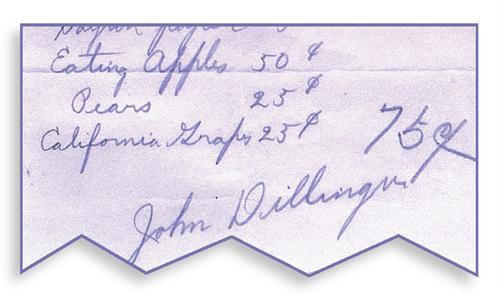 Eating Apples 50 ¢
Pears 25 ¢
California Graps 25 ¢
75¢
John Dillinger